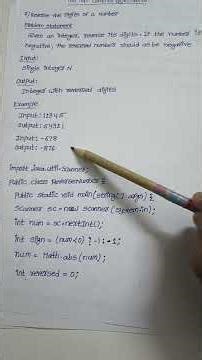 7) Reverse the Digits of a Number
Problem statement
Given an integer, reverse its digits. If the number is
negative, the reversed number should also be negative
Input:
Single integer N
Output:
Integer with reversed digits
Example
Input: 12345
Output: 54321
Input: -678
Output: -876
import java.util.Scanner;
Public class ReverseNumber {
Public static void main(String[] args) {
Scanner sc = new Scanner(System.in);
int num = sc.nextInt();
int sign = (num<0) ? -1 : 1;
num = Math.abs(num);
int reversed = 0;